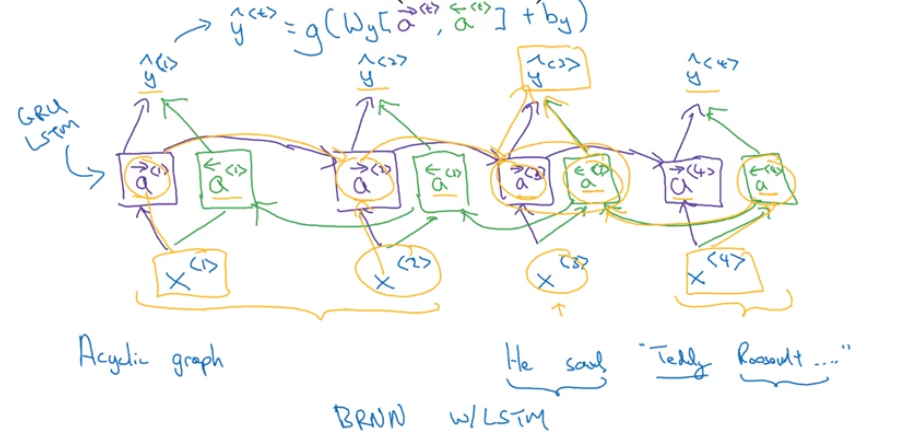 ŷ<t> = g(Wy[a→<t>, a←<t>] + by)
ŷ<1> ŷ<2> ŷ<3> ŷ<4>
GRU
LSTM
a→<1> a←<1> a→<2> a←<2> a→<3> a←<3> a→<4> a←<4>
x<1> x<2> x<3> x<4>
Acyclic graph He said "Teddy Roosevelt ...."
BRNN w/LSTM